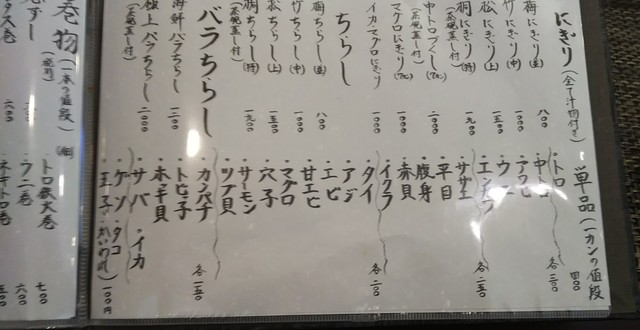 にぎり(全て汁物付き)
・梅にぎり(並) 八〇〇
・竹にぎり(中) 一〇〇〇
・松にぎり(上) 一五〇〇
・桐にぎり(特) 一九〇〇
(茶碗蒸し付)
・中トロづくし(7カン) 二〇〇〇
(茶碗蒸し付)
・マグロにぎり(7カン) 一〇〇〇
・イカマグロにぎり 一〇〇〇
ちらし
・梅ちらし(並) 八〇〇
・竹ちらし(中) 一〇〇〇
・松ちらし(上) 一五〇〇
・桐ちらし(特) 一九〇〇
(茶碗蒸し付)
バラちらし
・海鮮バラちらし 一二〇〇
・極上バラちらし 二〇〇〇
(茶碗蒸し付)
単品(一カンの値段)
・トロ 四〇〇
・中トロ 各三〇〇
・アワビ
・ウニ
・エンガワ 各二五〇
・サザエ
・平目
・腹身
・赤貝
・イクラ 各二〇〇
・タイ
・アジ
・エビ
・甘エビ
・マグロ
・穴子
・サーモン
・ツブ貝
・カンパチ 各一五〇
・トビ子
・ホッキ貝
・サバ・イカ
・ゲソ・タコ
・玉子 一〇〇円
巻物(一本の値段)
トロ鉄火巻 七〇〇
・ウニ巻
ネギトロ巻